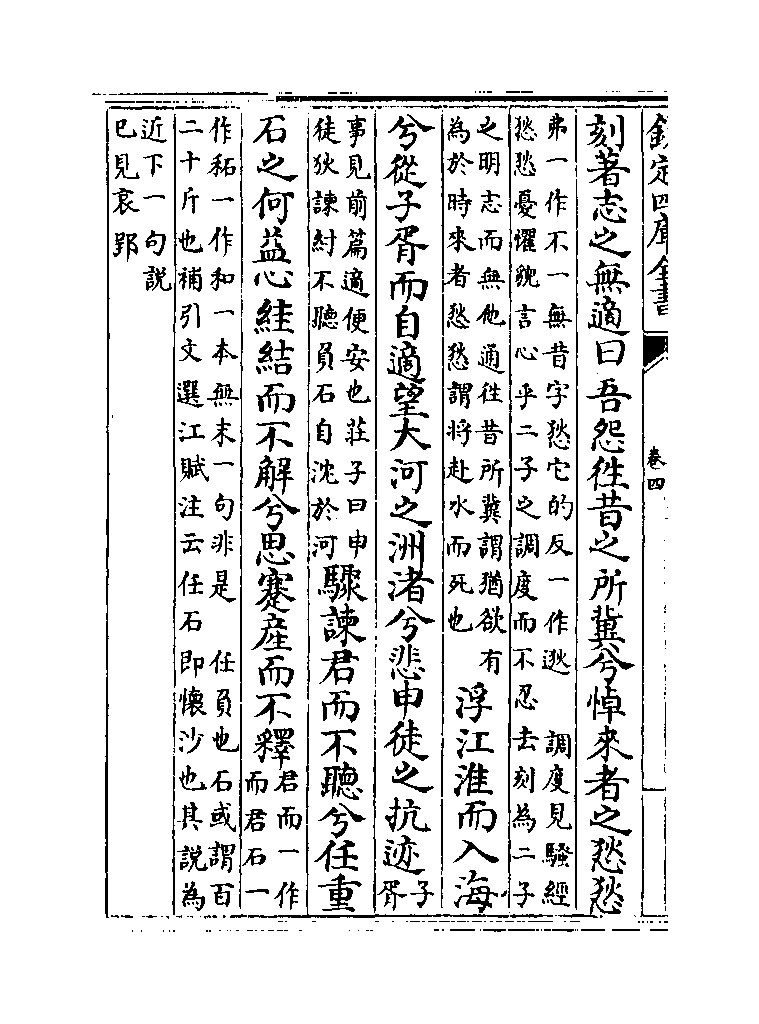 欽定四庫全書
卷四
刻著志之無適曰吾怨徃昔之所冀兮悼來者之悐悐
弗一作不一無昔字悐它的反一作逖　調度見騷經
悐悐憂懼貌言心乎二子之調度而不忍去刻為二子
之明志而無他通徃昔所冀謂猶欲有
為於時來者悐悐謂将赴水而死也
浮江淮而入海
兮從子胥而自適望大河之洲渚兮悲申徒之抗迹
子
胥
事見前篇適便安也莊子曰申
徒狄諫紂不聽負石自沈於河
驟諫君而不聽兮任重
石之何益心絓結而不解兮思蹇産而不釋
君而一作
而君石一
作䄷一作和一本無末一句非是　任負也石或謂百
二十斤也補引文選江賦注云任石即懷沙也其説為
近下一句説
已見哀郢